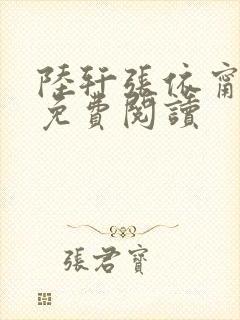 陸軒張依甯
免費閱讀
張君寶